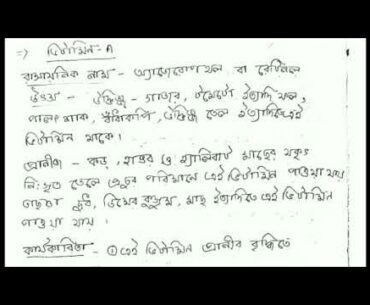 => ভিটামিন-A
রাসায়নিক নাম - অ্যাজেরোপথল বা রেটিনল
উৎস - উদ্ভিজ্জ - গাজর, টমেটো ইত্যাদি ফল,
পালং শাক, বাঁধাকপি, উদ্ভিজ্জ তেল ইত্যাদিতে এই
ভিটামিন থাকে।
প্রাণীজ - কড, হাঙর ও হ্যালিবাট মাছের যকৃৎ
নিঃসৃত তেলে প্রচুর পরিমানে এই ভিটামিন পাওয়া যায়
তাছাড়া দুধ, ডিমের কুসুম, মাছ ইত্যাদিতে এই ভিটামিন
পাওয়া যায়।
কার্যকারিতা - ① এই ভিটামিন প্রাণীর বৃদ্ধিতে